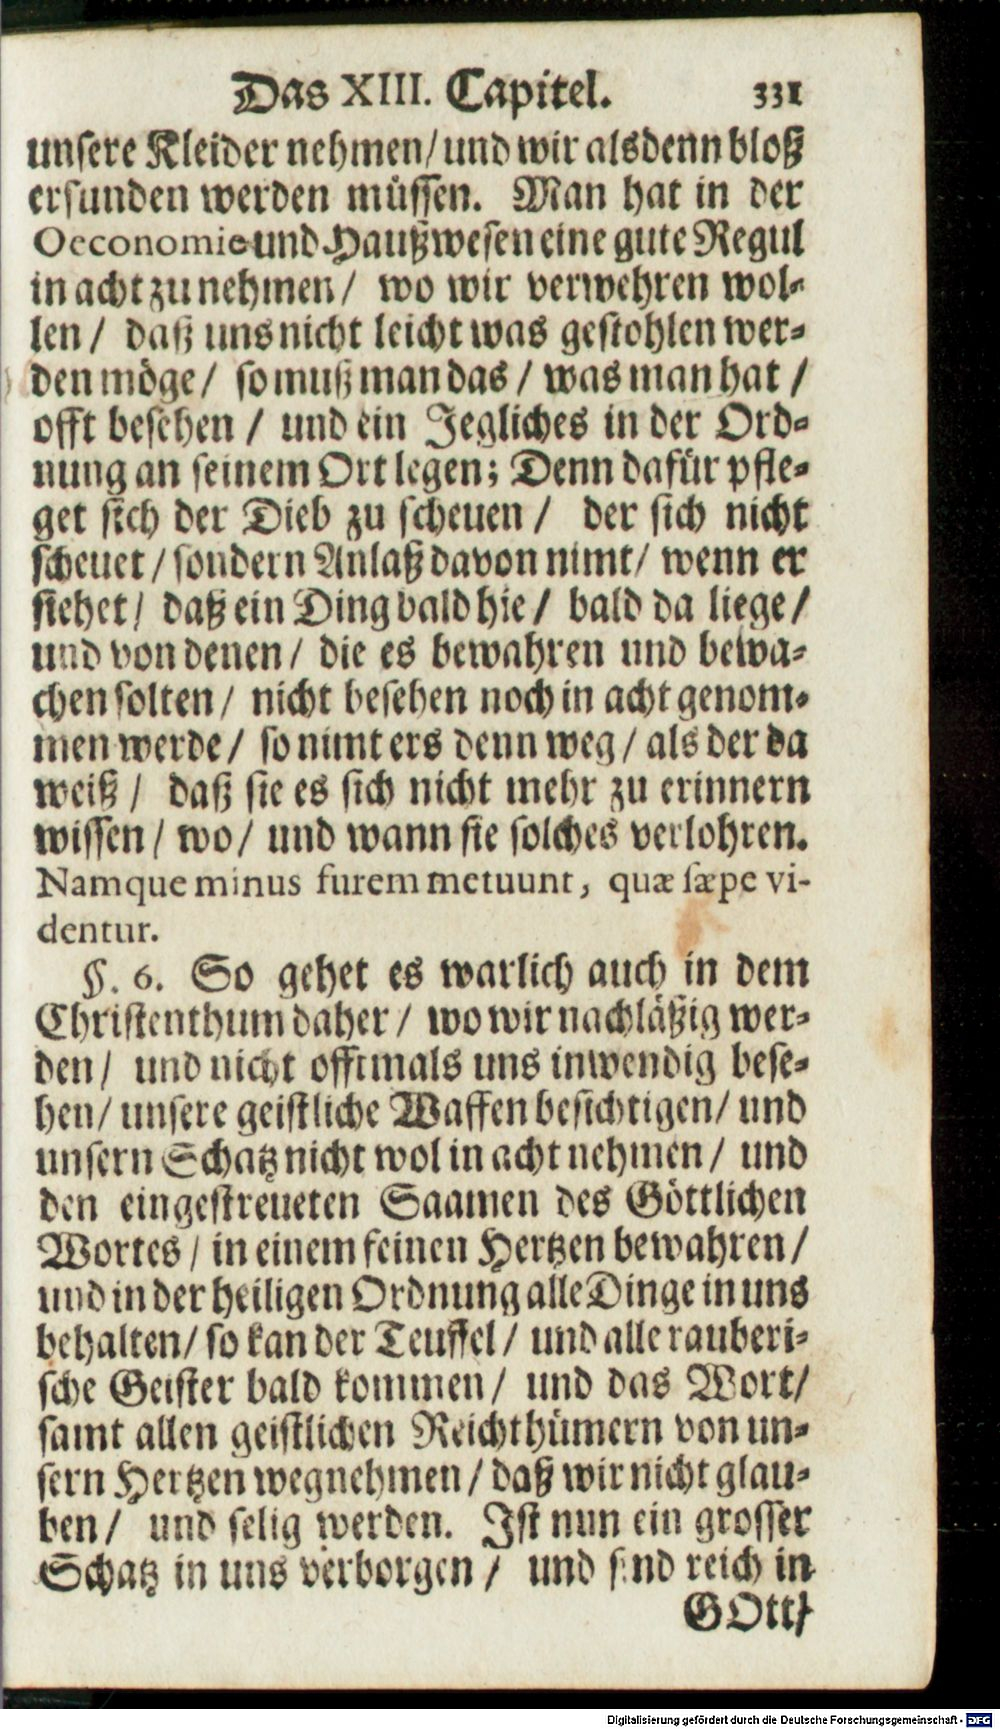 Das XIII. Capitel. 331
unsere Kleider nehmen/ und wir alsdenn bloß
erfunden werden müssen. Man hat in der
Oeconomie und Haußwesen eine gute Regul
in acht zu nehmen/ wo wir verwehren wol-
len/ daß uns nicht leicht was gestohlen wer-
den möge/ so muß man das/ was man hat/
offt besehen/ und ein Jegliches in der Ord-
nung an seinem Ort legen; Denn dafür pfle-
get sich der Dieb zu scheuen/ der sich nicht
scheuet/ sondern Anlaß davon nimt/ wenn er
siehet/ daß ein Ding bald hie/ bald da liege/
und von denen/ die es bewahren und bewa-
chen solten/ nicht besehen noch in acht genom-
men werde/ so nimt ers denn weg/ als der da
weiß/ daß sie es sich nicht mehr zu erinnern
wissen/ wo/ und wann sie solches verlohren.
Namque minus furem metuunt, quæ sæpe vi-
dentur.
§. 6. So gehet es warlich auch in dem
Christenthum daher/ wo wir nachläßig wer-
den/ und nicht offtmals uns inwendig bese-
hen/ unsere geistliche Waffen besichtigen/ und
unsern Schatz nicht wol in acht nehmen/ und
den eingestreueten Saamen des Göttlichen
Wortes/ in einem feinen Hertzen bewahren/
und in der heiligen Ordnung alle Dinge in uns
behalten/ so kan der Teuffel/ und alle rauberi-
sche Geister bald kommen/ und das Wort/
samt allen geistlichen Reichthümern von un-
sern Hertzen wegnehmen/ daß wir nicht glau-
ben/ und selig werden. Ist nun ein grosser
Schatz in uns verborgen/ und sind reich in
GOtt/
Digitalisierung gefördert durch die Deutsche Forschungsgemeinschaft - DFG